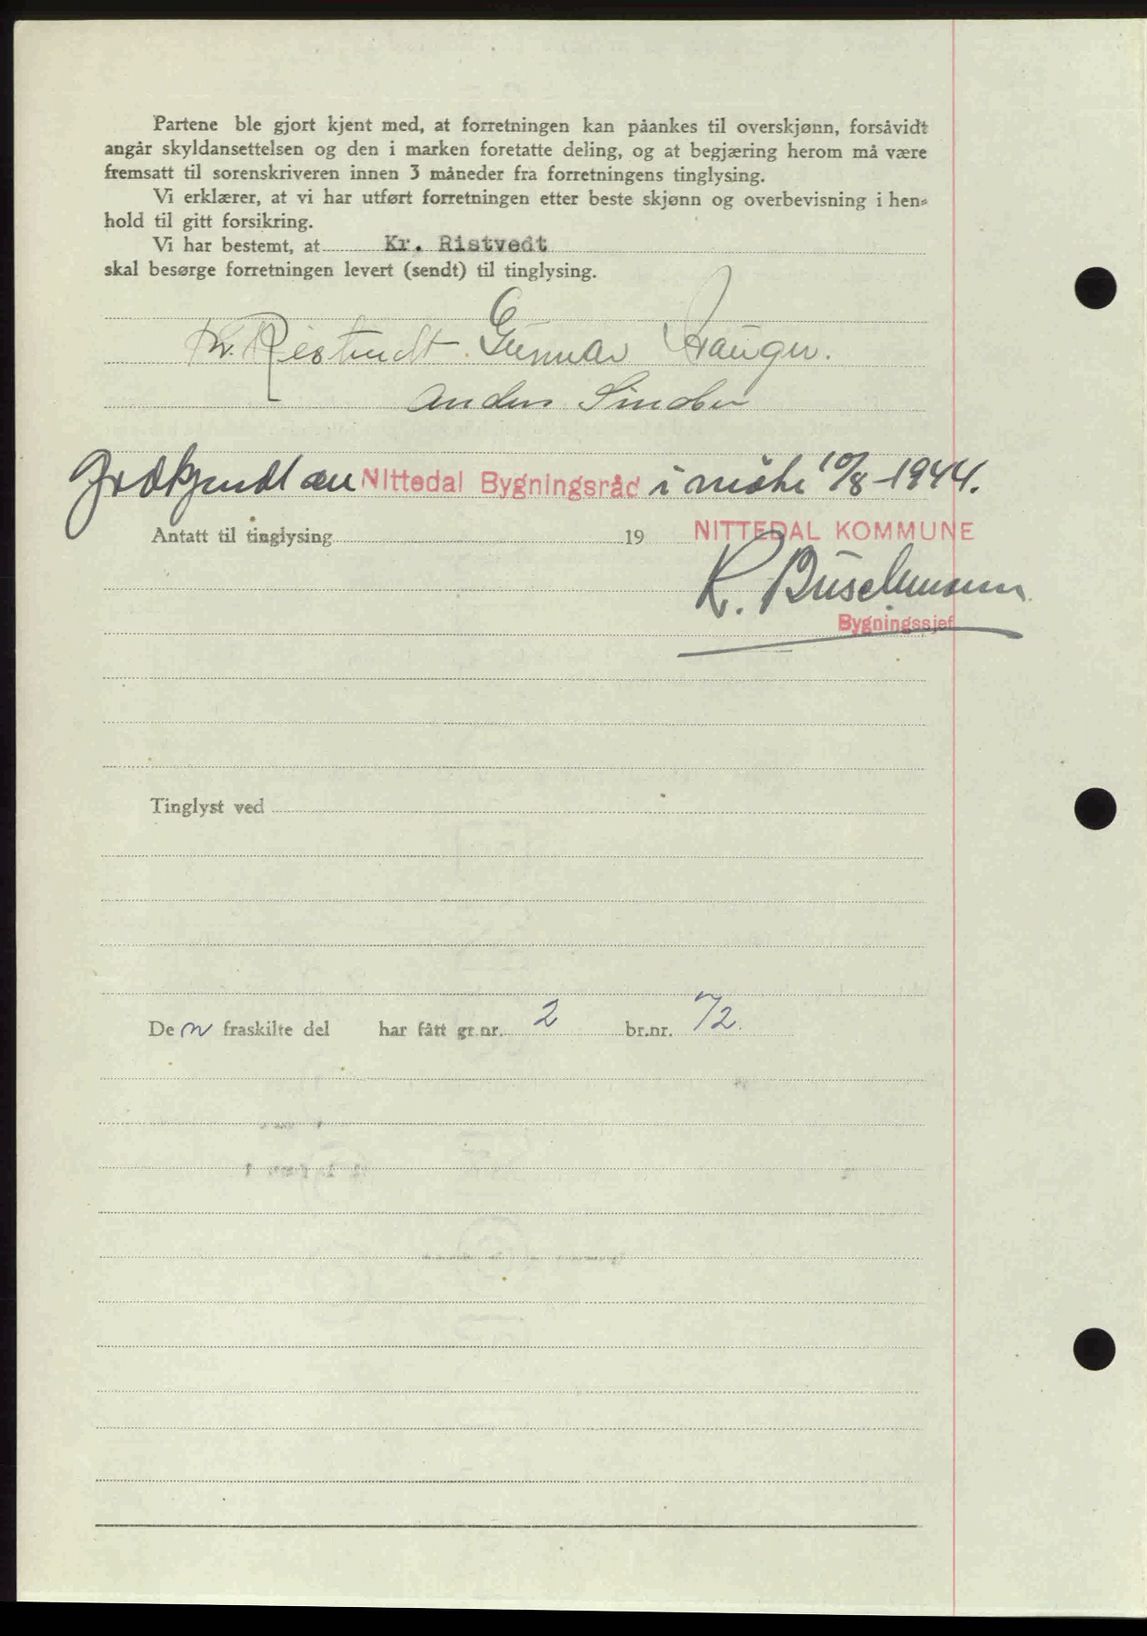 Partene ble gjort kjent med, at forretningen kan påankes til overskjønn, forsåvidt
angår skyldansettelsen og den i marken foretatte deling, og at begjæring herom må være
fremsatt til sorenskriveren innen 3 måneder fra forretningens tinglysing.
Vi erklærer, at vi har utført forretningen etter beste skjønn og overbevisning i hen-
hold til gitt forsikring.
Vi har bestemt, at Kr. Ristvedt
skal besørge forretningen levert (sendt) til tinglysing.
Kr. Ristvedt Gunnar
Anders Sinober
Godkjendt av Nittedal Bygningsråd i møte 10/8-1944.
Antatt til tinglysing 19 NITTEDAL KOMMUNE
K. Buschmann
Bygningssjef
Tinglyst ved
Den fraskilte del har fått gr.nr. 2 br.nr. 72